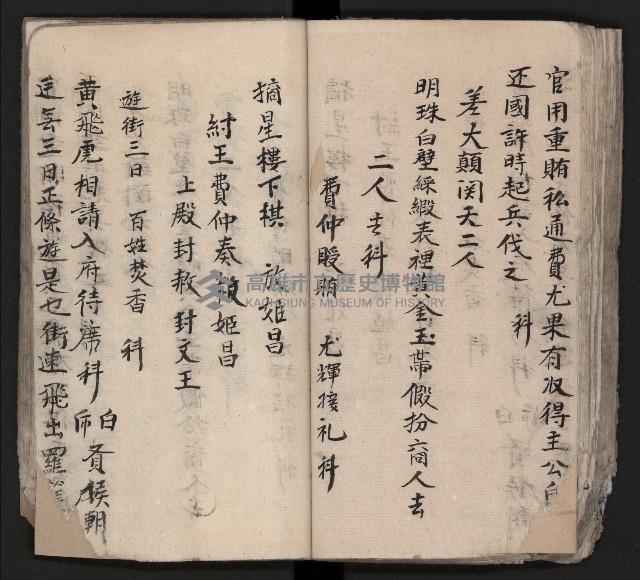 官用重賄私通費尤果有収得主公自
还國許時起兵伐之 科
差大顛闵夭二人
明珠白壁綵緞表裡黃金玉帶假扮商人去
二人去科
費仲暖賄 尤輝接礼科
摘星樓下祺 放姬昌
紂王費仲奏赦姬昌
上殿封赦 封文王
遊街三日 百姓焚香 科
黃飛虎相請入府待席科 白 賢侯朝
三日正條遊是乜街速飛出羅
高雄市立歷史博物館
KAOHSIUNG MUSEUM OF HISTORY